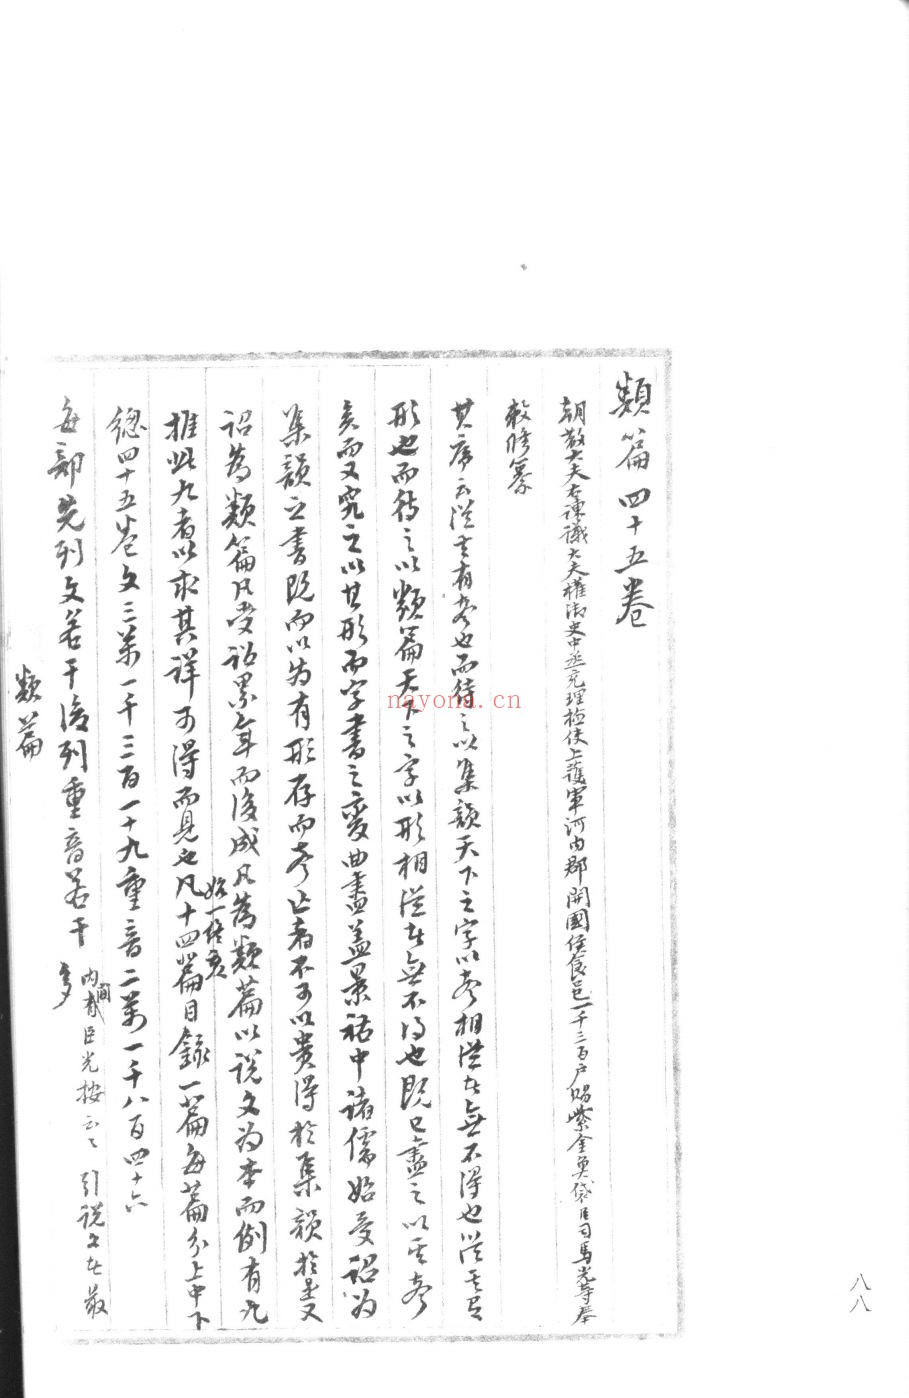 類篇四十五卷
朝散大夫右諫議大夫權御史中丞充理檢使上護軍河內郡開國侯食邑一千三百戶賜紫金魚袋臣司馬光等奉
敕修纂
其序云從其有聲也而待之以集韻天下之字以聲相從者無不得也從其有
形也而待之以類篇天下之字以形相從者無不得也既已盡之以其聲
矣而又究之以其形而字書之變曲盡蓋景祐中諸儒始受詔為
集韻之書既而以為有形存而聲亡者不可以貴得於集韻於是又
詔為類篇凡受詔累年而後成凡為類篇以說文為本而例有九
推此九者以求其詳可得而見也凡十四篇目錄一篇每篇分上中下
始一終亥
總四十五卷文三萬一千三百一十九重音二萬一千八百四十六
每部先列文若干後列重音若干
內間有臣光按云々 引說文者最
多
類篇
八八
nayona.cn